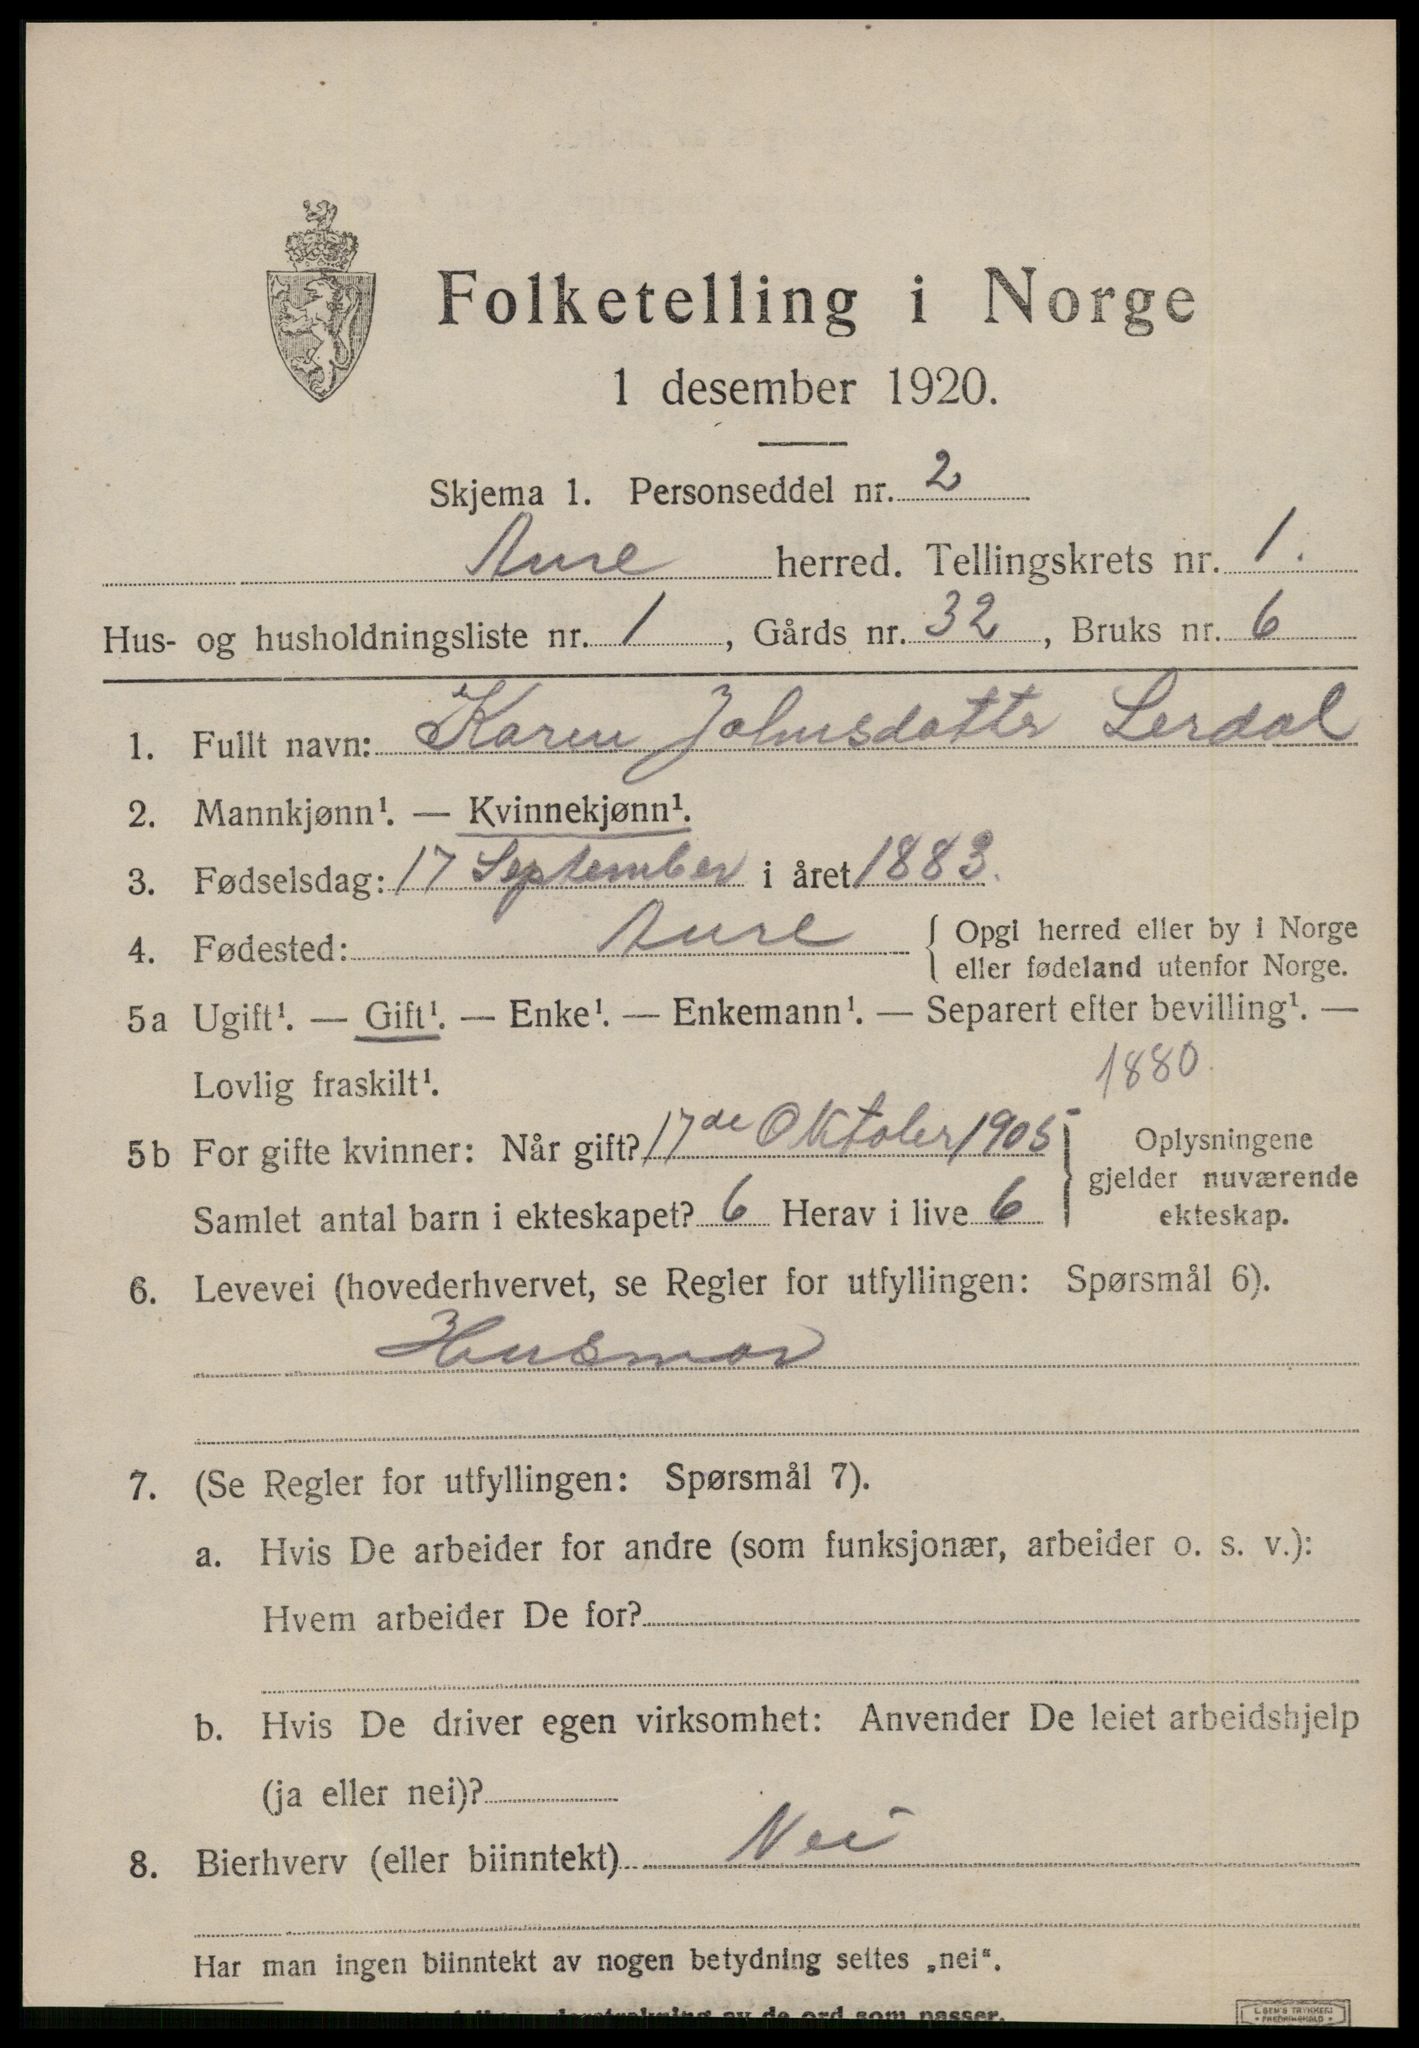 Folketelling i Norge
1 desember 1920.
Skjema 1. Personseddel nr. 2
Aure herred. Tellingskrets nr. 1.
Hus- og husholdningsliste nr. 1, Gårds nr. 32, Bruks nr. 6
1. Fullt navn: Karen Johnsdatter Lerdal
2. Mannkjønn¹. — Kvinnekjønn¹.
3. Fødselsdag: 17 September i året 1883.
4. Fødested: Aure { Opgi herred eller by i Norge
eller fødeland utenfor Norge.
5a Ugift¹. — Gift¹. — Enke¹. — Enkemann¹. — Separert efter bevilling¹. —
Lovlig fraskilt¹.
1880.
5b For gifte kvinner: Når gift? 17de Oktober 1905
Samlet antal barn i ekteskapet? 6 Herav i live 6
} Oplysningene
gjelder nuværende
ekteskap.
6. Levevei (hovederhvervet, se Regler for utfyllingen: Spørsmål 6).
Husmor
7. (Se Regler for utfyllingen: Spørsmål 7).
a. Hvis De arbeider for andre (som funksjonær, arbeider o. s. v.):
Hvem arbeider De for?
b. Hvis De driver egen virksomhet: Anvender De leiet arbeidshjelp
(ja eller nei)?
8. Bierhverv (eller biinntekt) Nei
Har man ingen biinntekt av nogen betydning settes „nei“.
av de ord som passer.